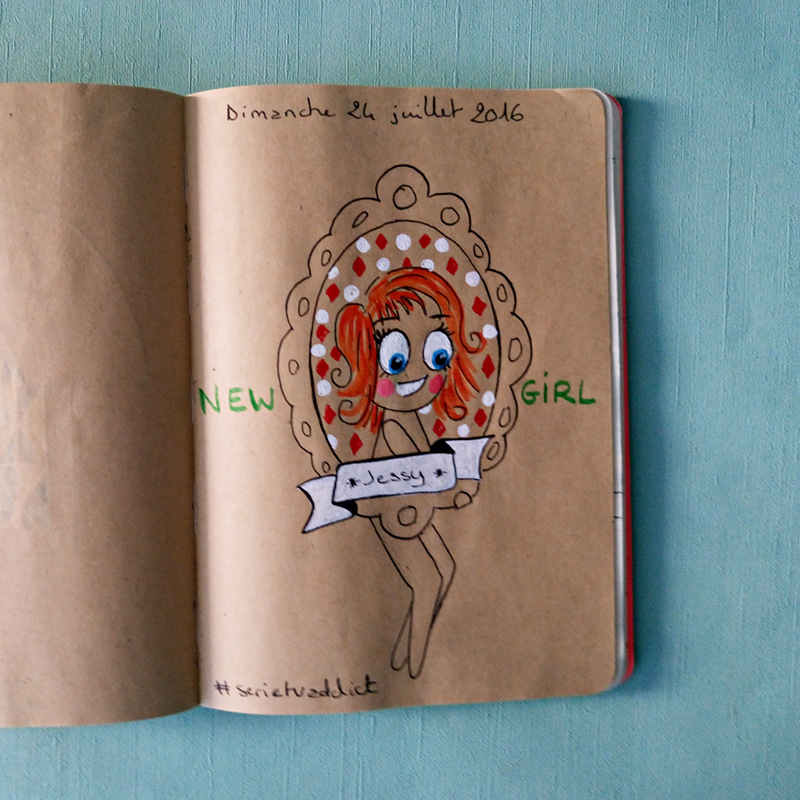 Dimanche 24 juillet 2016
NEW GiRL
*Jessy*
#serietvaddict